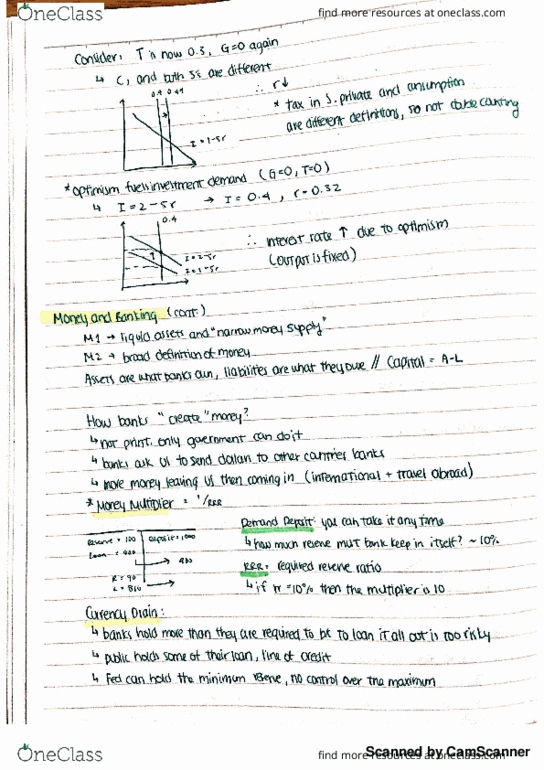 OneClass
find more resources at oneclass.com
Consider: T is now 0.3, G=0 again
↳ C, and both S's are different
0.4 0.49
∴ r↓
I = 1-5r
* tax in S. private and consumption
are different definitions, so not double counting
* Optimism fuels investment demand (G=0, T=0)
↳ I = 2-5r → I = 0.4, r = 0.32
0.4
I = 2-5r
I = 1-5r
∴ interest rate ↑ due to optimism
(output is fixed)
Money and Banking (cont.)
M1 → liquid assets and "narrow money supply"
M2 → broad definition of money
Assets are what banks own, liabilities are what they owe // Capital = A-L
How banks "create" money?
↳ not print. only government can do it
↳ banks ask US to send dollars to other countries banks
↳ more money leaving US then coming in (international + travel abroad)
* Money Multiplier = 1/RRR
Reserve = 100 Deposit = 1000
Loan = 900
→ 900
R = 90
L = 810
Demand Deposit: you can take it any time
↳ how much reserve must bank keep in itself? ~ 10%
RRR = required reserve ratio
↳ if rr = 10% then the multiplier is 10
Currency Drain:
↳ banks hold more than they are required to bc to loan it all out is too risky
↳ public holds some of their loan, line of credit
↳ Fed can hold the minimum reserve, no control over the maximum
OneClass
find more resources at oneclass.com
Scanned by CamScanner